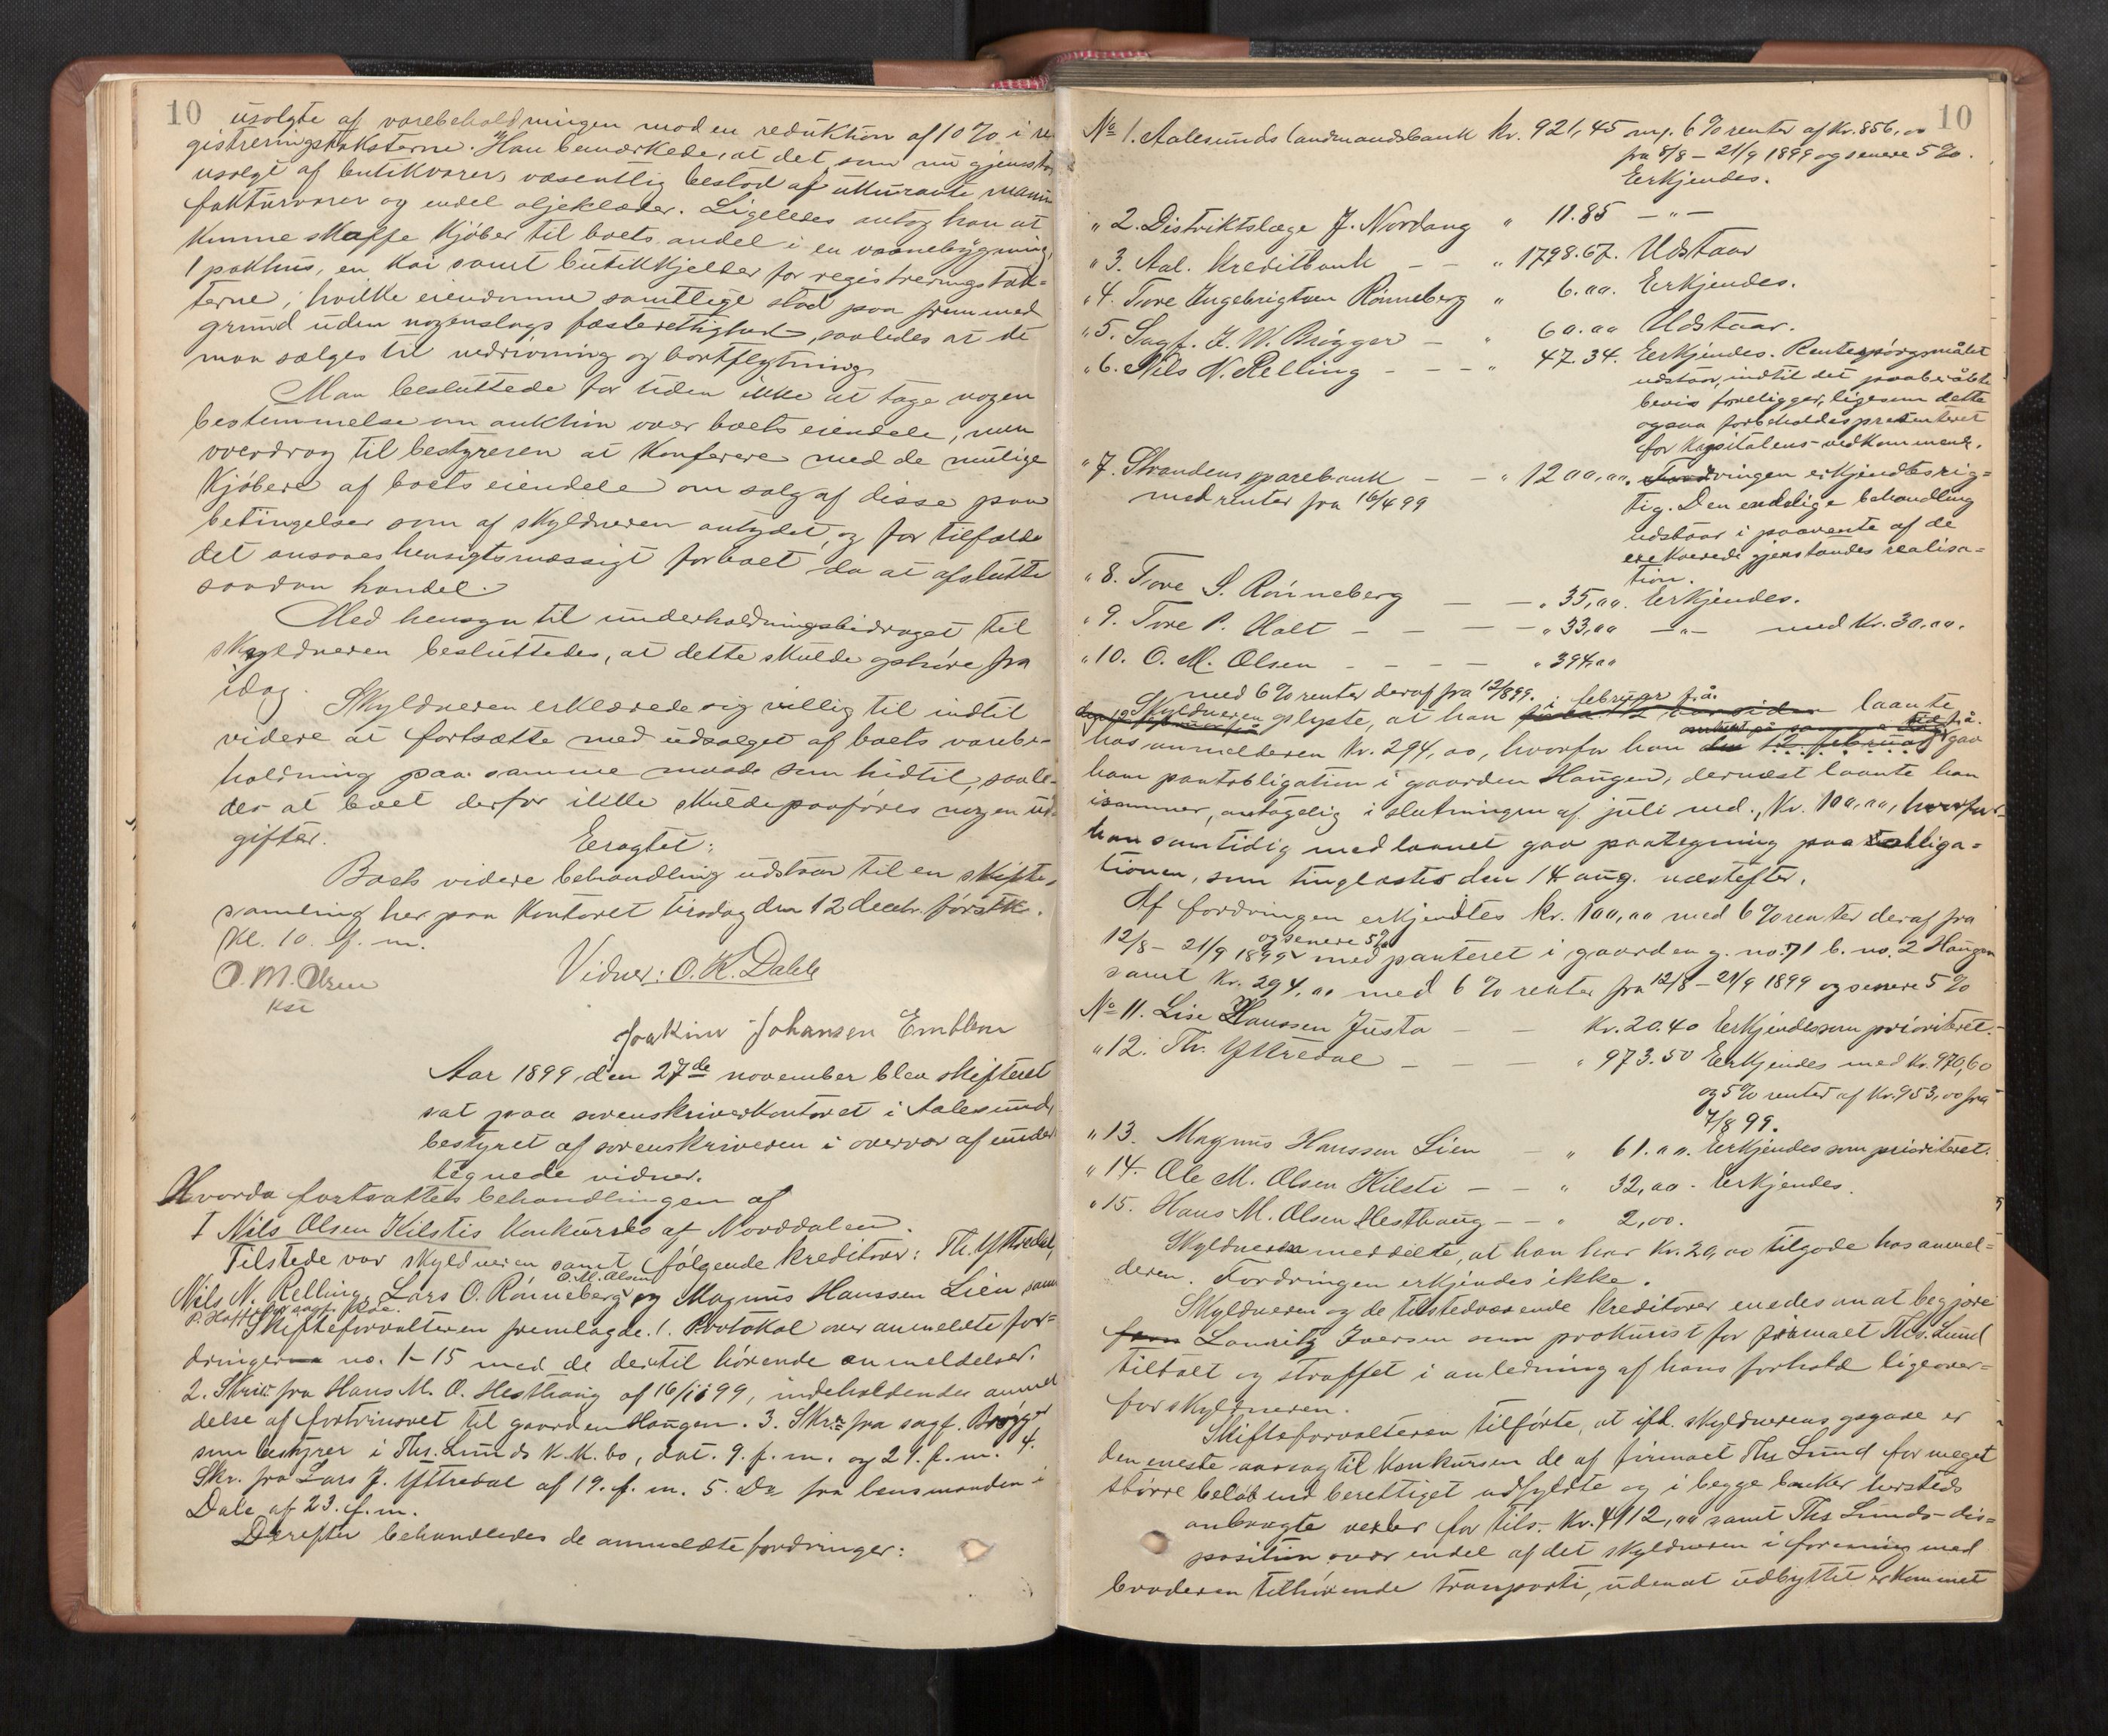 10
usolgte af varebeholdningen mod en reduktion af 10 % i re-
gistreringstaksterne. Han bemærkede, at det, som nu gjenstod
usolgt af butikvarer, væsentlig bestod af ukurante manu-
fakturvarer og endel oljeklæder. Ligeledes antog han at
kunne skaffe kjøber til boets andel i en vaanebygning,
1 pakhus, en kai samt butikkjelder for registreringstak-
terne; hvilke eiendomme samtlige stod paa fremmed
grund uden nogenslags fæsterettighed, saaledes at de
maa sælges til nedrivning og bortflytning.
Man besluttede for tiden ikke at tage nogen
bestemmelse om auktion over boets eiendele, men
overdrog til bestyreren at konferere med de mulige
kjøbere af boets eiendele om salg af disse paa
betingelser som af skyldneren antydet, og for tilfælde
det ansaaes hensigtsmæssigt for boet da at afslutte
saadan handel.
Med hensyn til underholdningsbidraget til
skyldneren besluttedes, at dette skulde ophøre fra
idag.
Skyldneren erklærede sig villig til indtil
videre at fortsætte med udsalget af boets varebe-
holdning paa samme maade som hidtil, saale-
des at boet derfor ikke skulde paaføres nogen ud-
gifter.
Eragtet:
Boets videre behandling udstaar til en skifte-
samling her paa kontoret tirsdag den 12 decbr. førstk.
kl. 10 f. m.
O. M. Olsen
kst
Vidner: O. K. Dahle
Joakim Johansen Emblem
Aar 1899 den 27de november blev skifteret
sat paa sorenskriverkontoret i Aalesund,
bestyret af sorenskriveren i overvær af under-
tegnede vidner.
Hvorda fortsattes behandlingen af
I Nils Olsen Kilstis konkursbo af Norddalen.
Tilstede var skyldneren samt følgende kreditorer: Th. Yttredal,
Nils N. Relling, Lars O. Rønneberg O. M. Olsen og Magnus Hanssen Lien samt
P. Holt for sagf.
Skifteforvalteren fremlagde. 1. Protokol over anmeldte for-
dringer no. 1-15 med de dertil hørende anmeldelser.
2. Skriv. fra Hans M. O. Hesthaug af 16/11 99, indeholdende anmel
delse af fortrinsret til gaarden Haugen. 3. Skr. fra sagf. Brøgger
som bestyrer i Ths. Lunds k.k.bo, dat. 9. f. m. og 21. f. m. 4.
Skr. fra Lars J. Yttredal af 19. f. m. 5. Do fra lensmanden i
Dale af 23. f. m.
Derefter behandledes de anmeldte fordringer:
10
No 1. Aalesunds landmandsbank kr. 921,45 m. 6 % renter af kr. 856,00
fra 8/8 – 21/9 1899 og senere 5 %.
Erkjendes.
" 2. Distriktslæge J. Nordang " 11.85 — " —
" 3. Aal. kreditbank — — " 1798.67. Udstaar
" 4. Tore Ingebrigtsen Rønneberg " 6.00. Erkjendes.
" 5. Sagf. J. W. Brøgger — " 60.00 Udstaar.
" 6. Nils N. Relling — — — " 47.34. Erkjendes. Rentespørgsmålet
udstaar, indtil det paaberåbte
bevis foreligger, ligesom dette
ogsaa forbeholdes præsenteret
for kapitalens vedkommende.
" 7. Strandens sparebank — — " 1200,00. Fordringen erkjendtes rig-
med renter fra 16/4 99
tig. Den endelige behandling
udstaar i paavente af de
exekverede gjenstandes realisa-
tion.
" 8. Tore S. Rønneberg — — " 35,00. Erkjendes.
" 9. Tore P. Holt — — — — " 33,00 — " — med kr. 30,00.
" 10. O. M. Olsen — — — — " 394,00
med 6 % renter deraf fra 12/8 99.
Skyldneren oplyste, at han i februar f. å. laante
hos anmelderen kr. 294,00, hvorfor han 12 februar gav
ham pantobligation i gaarden Haugen, dernæst laante han
isommer, antagelig i slutningen af juli md., kr. 100,00, hvorfor
han samtidig med laanet gav paategning paa obliga-
tionen, som tinglæstes den 14 aug. næstefter.
Af fordringen erkjendtes kr. 100,00 med 6 % renter deraf fra
12/8 – 21/9 1899 og senere 5 % med panteret i gaarden g. no. 71 b. no. 2 Haugen
samt kr. 294,00 med 6 % renter fra 12/8 – 21/9 1899 og senere 5 %
No 11. Lise Hanssen Justa — — kr. 20.40 Erkjendes som prioriteret.
" 12. Th. Yttredal — — — " 973.50 Erkjendes med kr. 970,60
og 5 % renter af kr. 953,00 fra
7/8 99.
" 13. Magnus Hanssen Lien — " 61.00. Erkjendes som prioriteret.
" 14. Ole M. Olsen Kilsti — — " 32,00 - Erkjendes.
" 15. Hans M. Olsen Hesthaug — — " 2,00.
Skyldneren meddelte, at han har kr. 20,00 tilgode hos anmel-
deren. Fordringen erkjendes ikke.
Skyldneren og de tilstedeværende kreditorer enedes om at begjære
Lauritz Iversen som prokurist for firmaet Ths. Lund
tiltalt og straffet i anledning af hans forhold ligeover-
for skyldneren.
Skifteforvalteren tilførte, at ifl. skyldnerens opgave er
den eneste aarsag til konkursen de af firmaet Ths Lund for meget
større beløb end berettiget udfyldte og i begge banker hersteds
anbragte vexler for tils. kr. 4112,00 samt Ths Lunds dis-
position over endel af det skyldneren i forening med
broderen tilhørende tranparti, uden at udbyttet er kommet